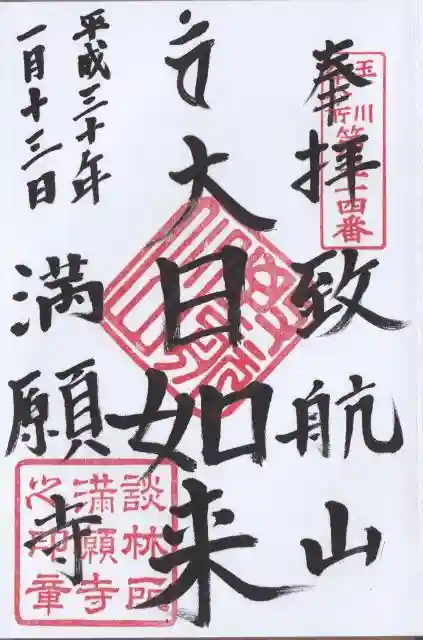 奉拝
致航山
大日如来
平成三十年
一月十三日
満願寺
玉川
第三十四番
談林所
満願寺
之印章